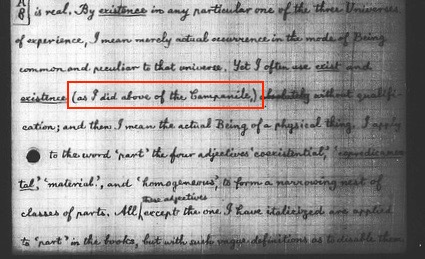 is real. By existence in any particular one of the three Universes
of experience, I mean merely actual occurrence in the mode of Being
common and peculiar to that universe. Yet I often use exist and
existence (as I did above of the Campanile,) absolutely without qualifi-
cation; and then I mean the actual Being of a physical thing. I apply
to the word 'part' the four adjectives 'coexistential,' 'copredicamen-
tal,' 'material', and 'homogeneous', to form a narrowing nest of
these adjectives
classes of parts. All, except the one I have italicized are applied
to 'part' in the books, but with such vague definitions as to disable them